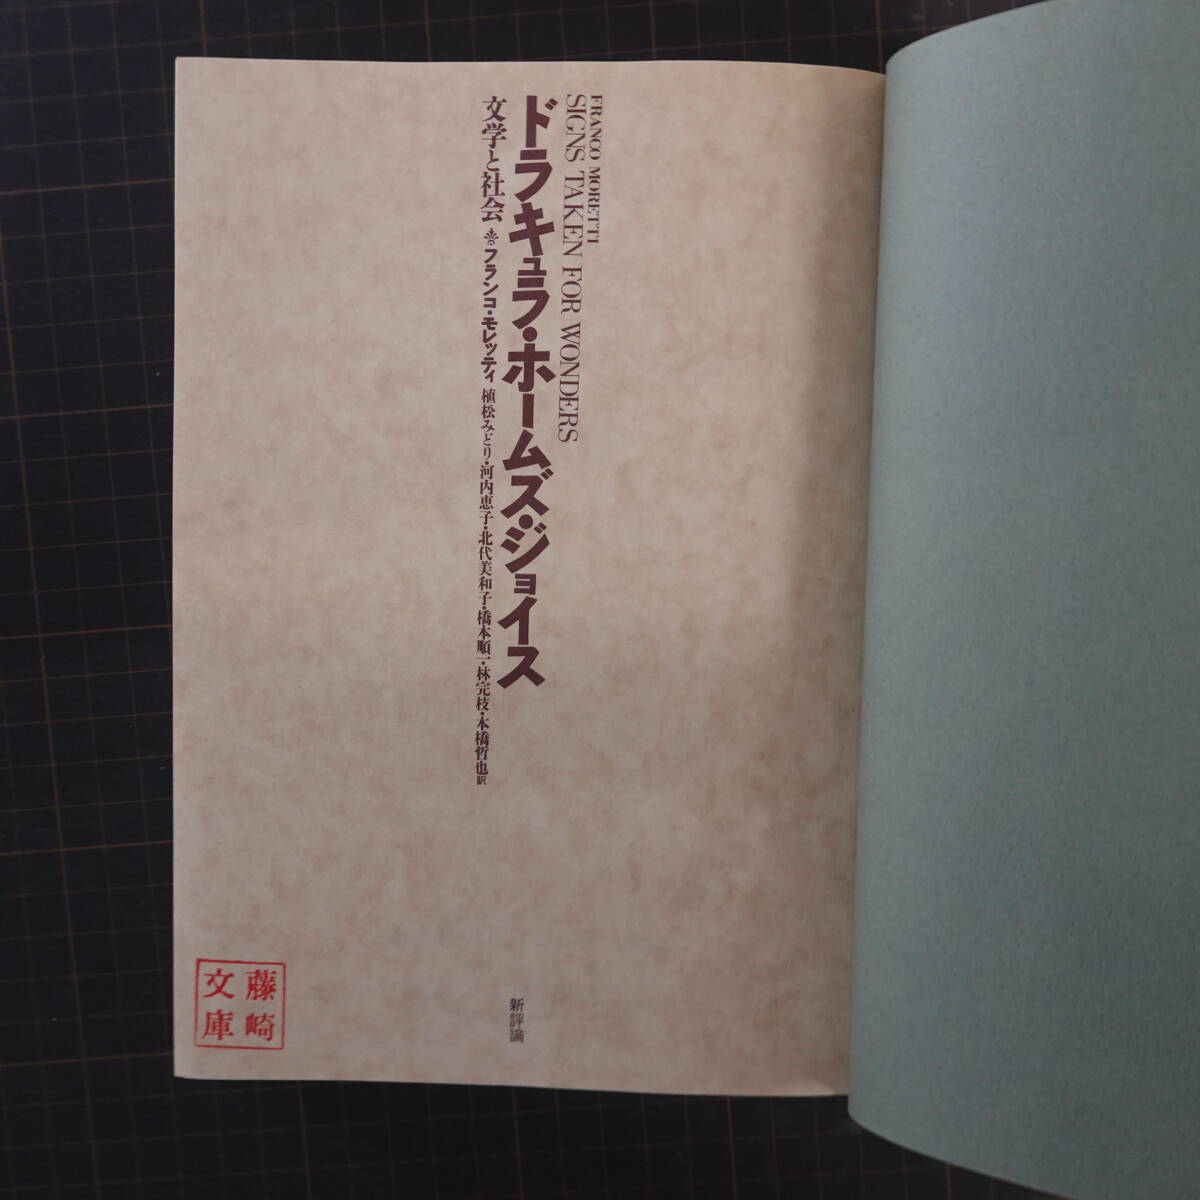 FRANCO MORETTI
SIGNS TAKEN FOR WONDERS
ドラキュラ・ホームズ・ジョイス
文学と社会 フランコ・モレッティ 植松みどり・河内恵子・北代美和子・橋本順一・林完枝・本橋哲也訳
新評論
藤崎
文庫